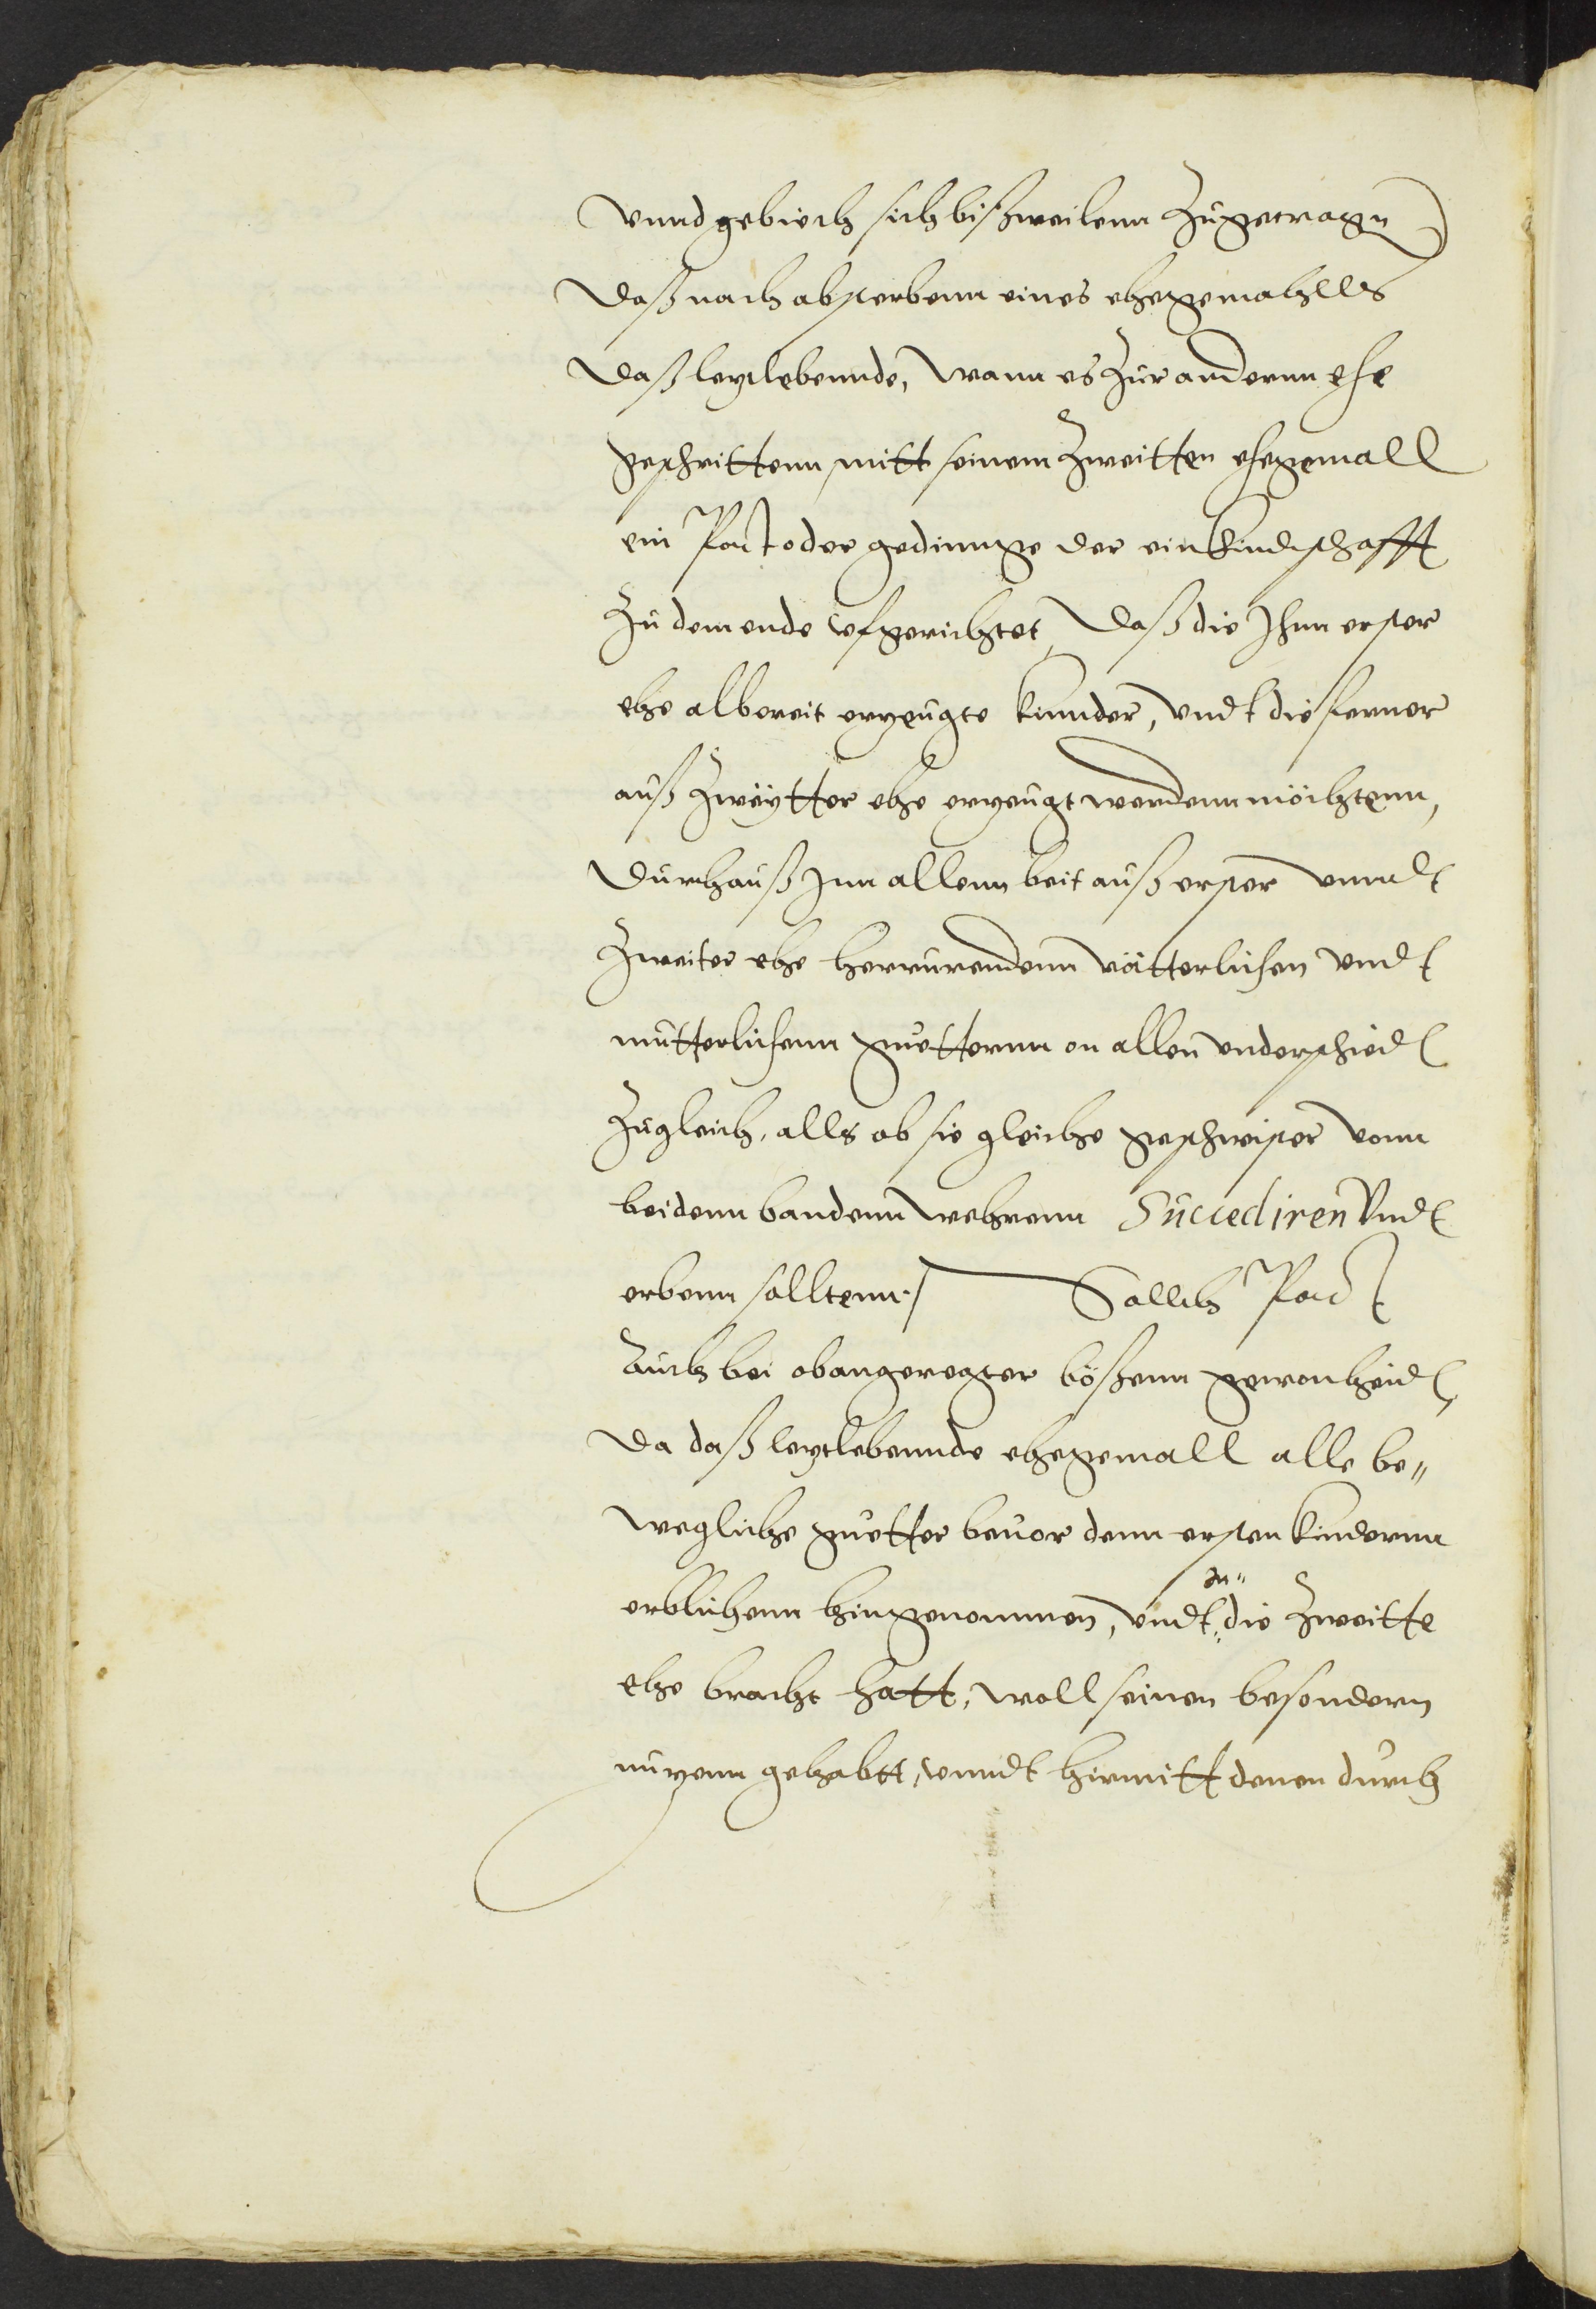 vnnd gebiech sich bißweilenn Zugetragen
Daß nach absterbenn eines ehegemahlls
Daß leztlebennde, wann es Zur andernn ehe
geschrittenn mitt seinem Zweitten ehegemall
ein Pact oder gedinnge der einkindschafft
Zu dem ende vfgerichtet, Daß die Ihnn erster
ehe albereit erzeugte kinnder, vndt die ferner
auß Zweytter ehe erzeugt werdenn möchtenn,
Durchauß Inn allenn beit auß erster vnndt
Zweiter ehe herrurendenn vätterlichen vndt
mütterlichenn guetternn on allen vnderschied
Zugleich, alls ob sie gleiche geschwister vonn
beidenn bandenn wehrenn Succediren Vndt
erbenn solltenn. Sollch Pact
Auch bei obangeregter bößenn gewonheid,
Da daß leztlebennde ehegemall alle be„
wegliche guetter beuor denn ersten kindernn
erblichenn hingenommen, vndt die Zweitte
in„
ehe bracht hatt, woll seinen besondern
nuzenn gehabtt, vnndt hirmitt denen durch